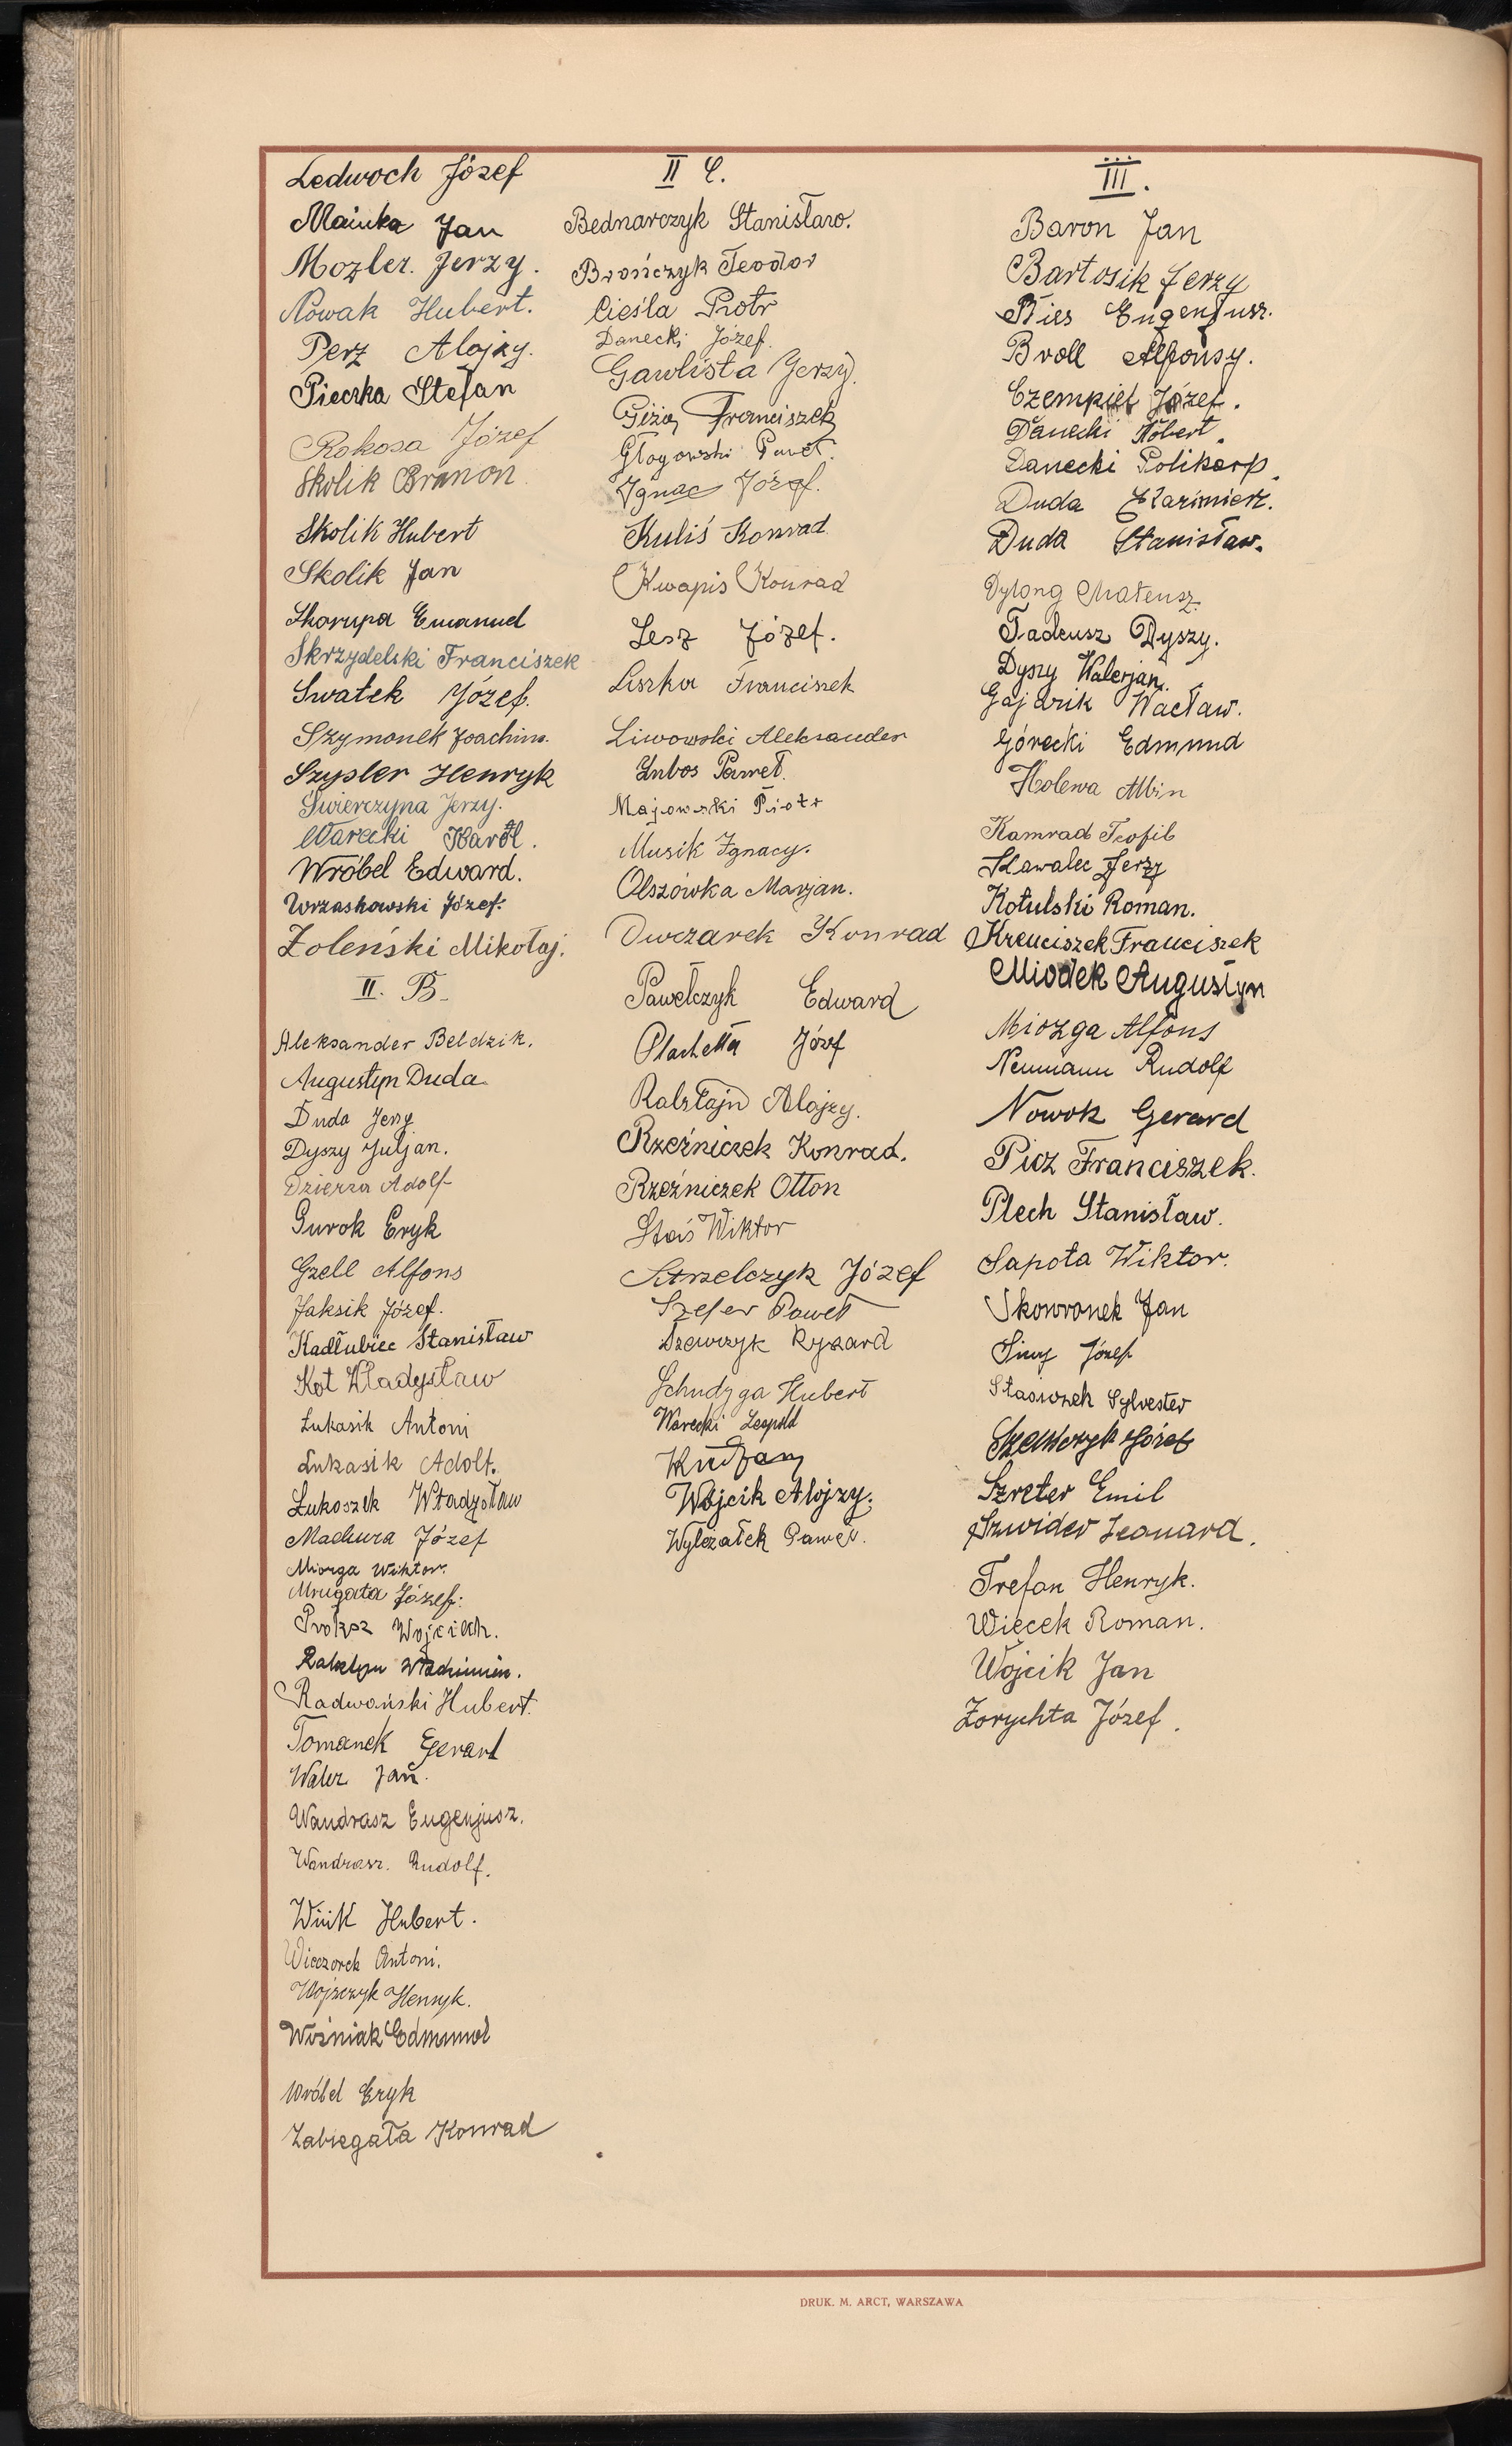 Ledwoch Józef
Mainka Jan
Mozler. Jerzy.
Nowak Hubert.
Perz Alojzy.
Pieczka Stefan
Rokosa Józef
Skolik Brunon
Skolik Hubert
Skolik Jan
Skorupa Emanuel
Skrzydelski Franciszek
Swatek Józef.
Szymonek Joachim.
Szypler Henryk
Świerczyna Jerzy.
Warecki Karol.
Wróbel Edward.
Wrzaskowski Józef.
Żoleński Mikołaj.
II. B.
Aleksander Beldzik.
Augustyn Duda.
Duda Jerzy
Dyszy Juljan.
Dzierza Adolf
Gurok Eryk
Gzell Alfons
Jaksik Józef.
Kadłubiec Stanisław
Kot Władysław
Łukasik Antoni
Łukasik Adolf.
Łukoszek Władysław
Machura Józef
Miozga Wiktor.
Mrugała Józef.
Proksz Wojciech.
Radwański Hubert.
Tomanek Gerard
Waler Jan.
Wandrasz Eugenjusz.
Wandrasz. Rudolf.
Wink Hubert.
Wieczorek Antoni.
Wojszczyk Henryk.
Woźniak Edmund
Wróbel Eryk
Zabiegała Konrad
II C.
Bednarczyk Stanisław.
Brończyk Teodor
Cieśla Piotr
Danecki Józef.
Gawlista Jerzy.
Giża Franciszek
Głogowski Paweł.
Ignac Józef.
Kuliś Konrad
Kwapis Konrad
Lesz Józef.
Liszka Franciszek
Liwowski Aleksander
Lubos Paweł.
Majowski Piotr
Musik Ignacy.
Olszówka Marjan.
Owczarek Konrad
Pawełczyk Edward
Plachetta Józef
Ralsztajn Alojzy.
Rzeźniczek Konrad.
Rzeźniczek Otton
Staś Wiktor
Strzelczyk Józef
Szefer Paweł
Szewczyk Ryszard
Schudyga Hubert
Warecki Leopold
Wójcik Alojzy.
Wylczałek Paweł.
III.
Baron Jan
Bartosik Jerzy
Bies Eugenjusz.
Broll Alfonsy.
Czempiel Józef.
Danecki Robert.
Danecki Polikarp.
Duda Kazimierz.
Duda Stanisław.
Dylong Mateusz.
Tadeusz Dyszy.
Dyszy Walerjan.
Gajdzik Wacław.
Górecki Edmund
Holewa Albin
Kamrad Teofil
Kawalec Jerzy
Kotulski Roman.
Krenciszek Franciszek
Miodek Augustyn
Miozga Alfons
Neumann Rudolf
Nowok Gerard
Picz Franciszek.
Plech Stanisław.
Sapota Wiktor.
Skowronek Jan
Siwy Józef
Stasiczek Sylvester
Szewczyk Józef
Szreter Emil
Szwider Leonard.
Trefan Henryk.
Wiecek Roman.
Wójcik Jan
Zorychta Józef.
DRUK. M. ARCT, WARSZAWA